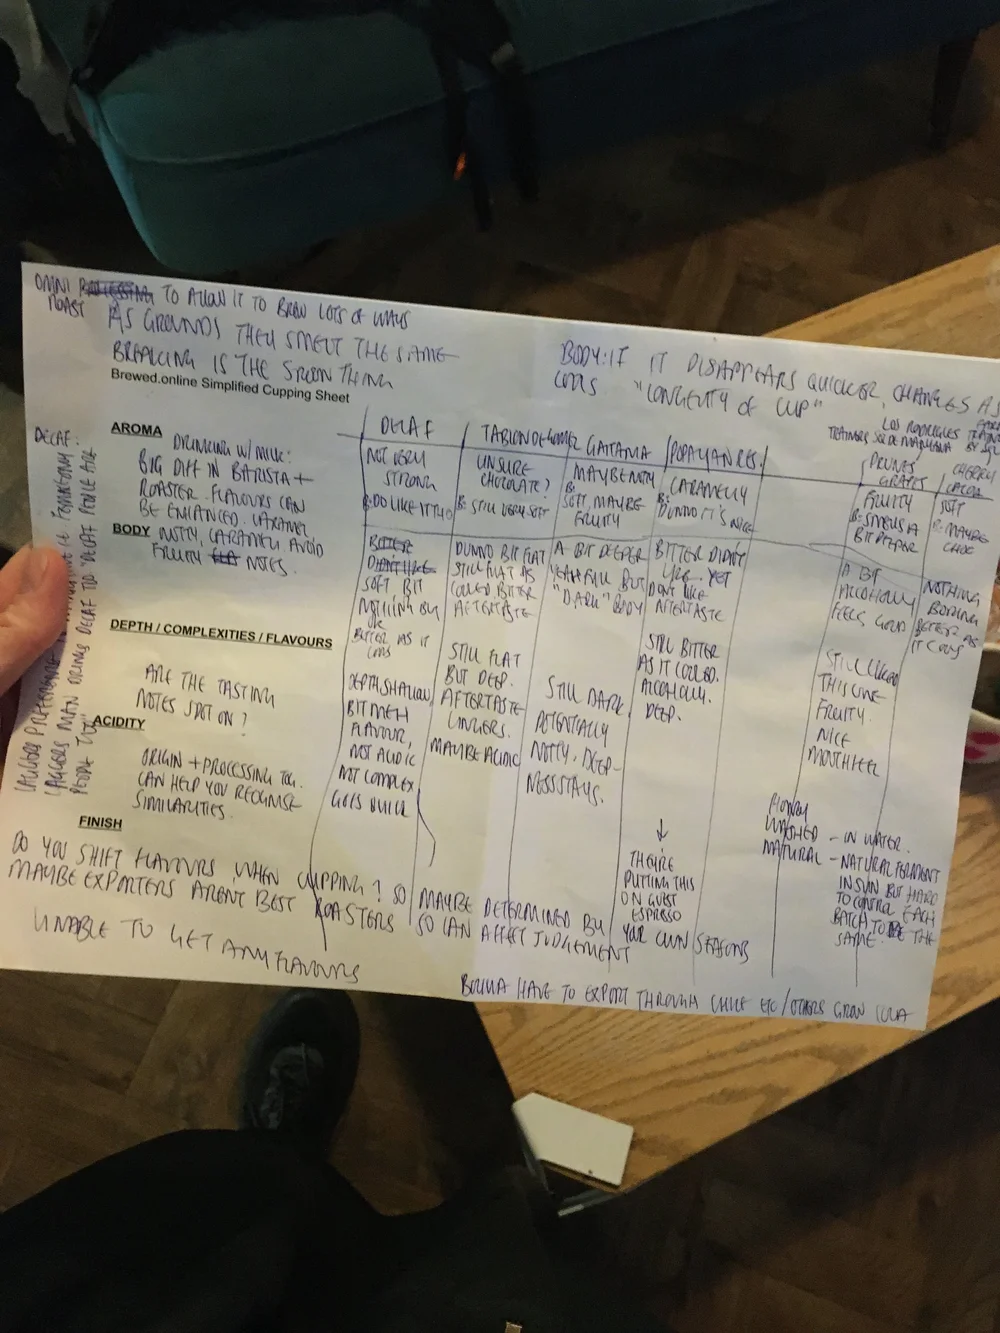 OMNI
ROAST
TO ALLOW IT TO BREW LOTS OF WAYS
AS GROUNDS THEY SMELT THE SAME
BREAKING IS THE SPOON THING
Brewed.online Simplified Cupping Sheet
BODY: IF IT DISAPPEARS QUICKER, CHANGES AS
COOLS "LONGEVITY OF CUP"
DECAF:
AROMA
DRINKING W/ MILK:
BIG DIFF IN BARISTA +
ROASTER. FLAVOURS CAN
BE ENHANCED. CARAMEL
BODY
NUTTY, CARAMELY AVOID
FRUITY NOTES.
DEPTH / COMPLEXITIES / FLAVOURS
ARE THE TASTING
NOTES SPOT ON?
ACIDITY
ORIGIN + PROCESSING
CAN HELP YOU RECOGNISE
SIMILARITIES.
FINISH
DO YOU SHIFT FLAVOURS WHEN CUPPING? SO MAYBE DETERMINED BY YOUR OWN SEASONS
MAYBE EXPORTERS ARENT BEST ROASTERS SO CAN AFFECT JUDGEMENT
UNABLE TO GET ANY FLAVOURS
DECAF
NOT VERY
STRONG
B: DO LIKE IT THO
BITTER
DIDN'T LIKE
SOFT BIT
NOTHING
BITTER AS IT
COOLS
DEPTH SHALLOW
BIT MEH
FLAVOUR,
NOT ACIDIC
NOT COMPLEX
GOES QUICK
UNSURE
CHOCOLATE?
B: STILL VERY SOFT
DUNNO BIT FLAT
STILL FLAT AS
COOLED BITTER
AFTERTASTE
STILL FLAT
BUT DEEP.
AFTERTASTE
LINGERS.
MAYBE ACIDIC
GAITANIA
MAYBE NUTTY
B:
SOFT, MAYBE
FRUITY
A BIT DEEPER
YEAH FULL BUT
"DARK" BODY
STILL DARK,
POTENTIALLY
NUTTY. DEEP-
NESS STAYS.
POPAYAN RES.
CARAMELLY
B:
DUNNO IT'S NICE
BITTER DIDN'T
LIKE. YET
DONT LIKE
AFTERTASTE
STILL BITTER
AS IT COOLED.
ALCOHOLY.
DEEP.
THEY'RE
PUTTING THIS
ON GUEST
ESPRESSO
LOS RODRIGUES
PRUNES
GRAPES
FRUITY
B: SMELLS A
BIT DEEPER
A BIT
ALCOHOLLY
FEELS GOOD
STILL LIKED
THIS ONE
FRUITY.
NICE
MOUTHFEEL
CHERRY
CACAO
SOFT
B: MAYBE
CHOC
NOTHING
BORING
BETTER AS
IT COOLS
HONEY
WASHED - IN WATER.
NATURAL - NATURAL FERMENT
IN SUN BUT HARD
TO CONTROL EACH
BATCH TO BE THE
SAME.
HAVE TO EXPORT THROUGH CHILE ETC / OTHERS GROW